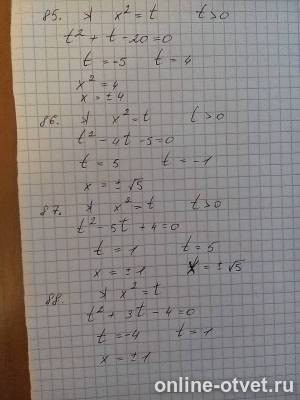 85. x² = t t > 0
t² + t - 20 = 0
t = -5 t = 4
x² = 4
x = ± 4
86. x² = t t > 0
t² - 4t - 5 = 0
t = 5 t = -1
x = ± √5
87. x² = t t > 0
t² - 5t + 4 = 0
t = 1 t = 5
x = ± 1 x = ± √5
88. x² = t
t² + 3t - 4 = 0
t = -4 t = 1
x = ± 1
online-otvet.ru